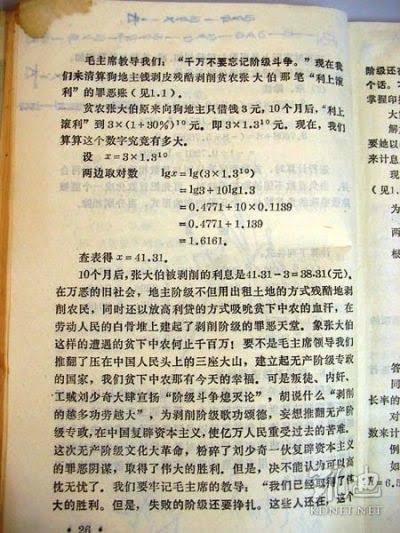 毛主席教导我们：“千万不要忘记阶级斗争。”现在我
们来清算狗地主钱剥皮残酷剥削贫农张大伯那笔“利上滚
利”的罪恶账（见1.1）。
贫农张大伯原来向狗地主只借钱3元，10个月后，“利上
滚利”到 3×(1+30%)¹⁰ 元。即 3×1.3¹⁰元。现在，我们
算算这个数字究竟有多大。
设 x=3×1.3¹⁰
两边取对数 lgx=lg(3×1.3¹⁰)
=lg3+10lg1.3
=0.4771+10×0.1139
=0.4771+1.139
=1.6161.
查表得 x=41.31.
10个月后，张大伯被剥削的利息是41.31-3=38.31(元)。
在万恶的旧社会，地主阶级不但用出租土地的方式残酷地剥
削农民，同时还以放高利贷的方式吸吮贫下中农的血汗，在
劳动人民的白骨堆上建起了剥削阶级的罪恶天堂。象张大伯
这样的遭遇的贫下中农何止千百万！要不是毛主席领导我们
推翻了压在中国人民头上的三座大山，建立起无产阶级专政
的国家，我们贫下中农那有今天的幸福。可是叛徒、内奸、
工贼刘少奇大肆宣扬“阶级斗争熄灭论”，胡说什么“剥削
的越多功劳越大”，为剥削阶级歌功颂德，妄想推翻无产阶
级专政，在中国复辟资本主义，使亿万人民重受过去的苦难。
这次无产阶级文化大革命，粉碎了刘少奇一伙复辟资本主义
的罪恶阴谋，取得了伟大的胜利。但是，决不能认为可以高
枕无忧了。我们要牢记毛主席的教导，“我们已经取得了伟
大的胜利。但是，失败的阶级还要挣扎。这些人还在，这个
·26·
阶级还在
个话。
掌握印
大
解
要她以
来计息
为
两
根
答
长半的
对
数来计
例
如
=6.5
KDNET.NET